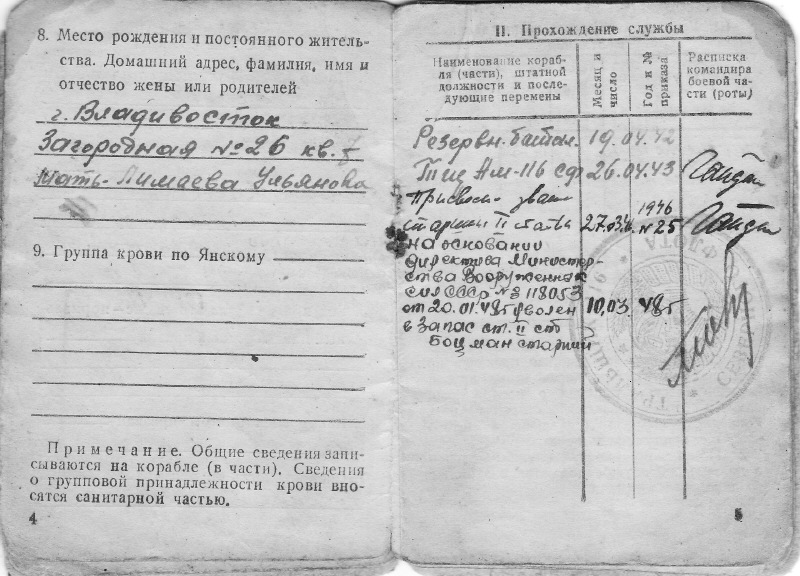 8. Место рождения и постоянного житель-
ства. Домашний адрес, фамилия, имя и
отчество жены или родителей
г. Владивосток
Загородная №26 кв. 7
Мать-Лимаева Ульяновна
9. Группа крови по Янскому
Примечание. Общие сведения запи-
сываются на корабле (в части). Сведения
о групповой принадлежности крови вно-
сятся санитарной частью.
4
II. Прохождение службы
Наименование кораб-
ля (части), штатной
должности и после-
дующие перемены
Месяц и
число
Год и №
приказа
Расписка
командира
боевой ча-
сти (роты)
Резервн. батал. 19.04.42
Тщ Ам-116 СФ 26.04.43
Присвоено звание
старшины II статьи 27.03. 1946 №25
на основании
директива Министер-
ства Вооруженных
сил СССР №З 118053
от 20.01.48г уволен 10.03 48г
в запас ст. II ст
Боцман старший
5